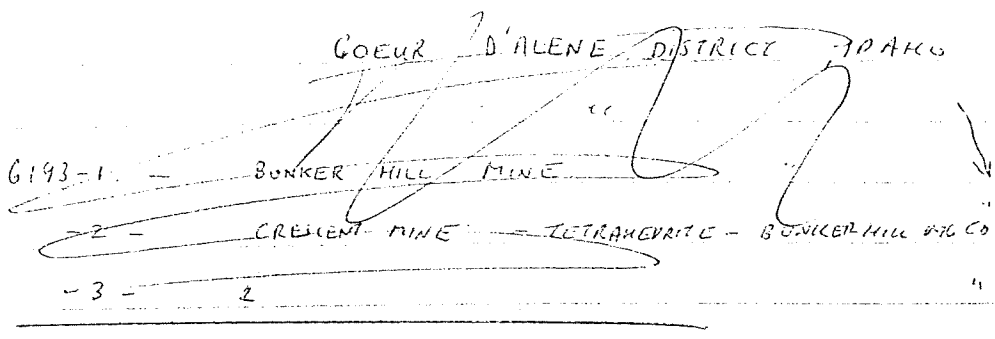 COEUR D'ALENE DISTRICT, IDAHO
"
6193-1. - BUNKER HILL MINE
-2- CRESCENT MINE - TETRAHEDRITE - BUNKER HILL MG CO
"
-3-
"